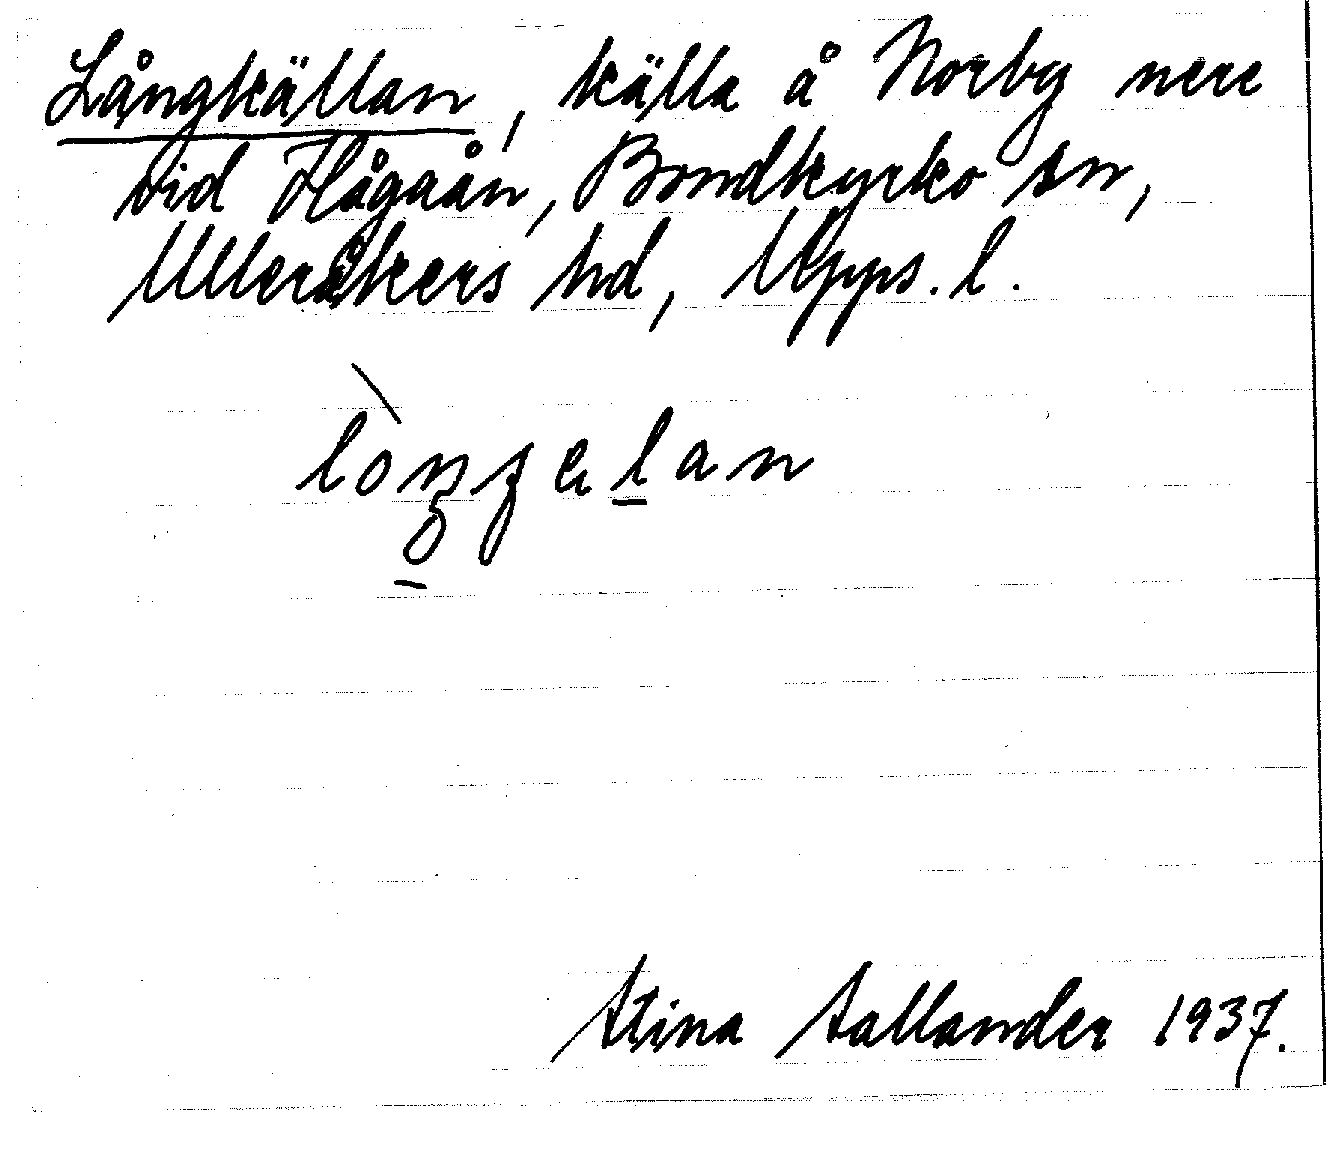 Långkällan, källa å Norby nere
vid Hågaån, Bondkyrko sn,
Ulleråkers hd, Upps. l.
Stina Sallander 1937.